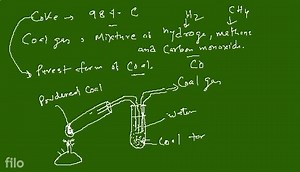 Coke → 98% C
H₂ CH4
Coal gas = Mixture of hydroge, methane
and Carbon monoxide.
CO
→ Purest form of Coal.
→ Coal gas
Powdered Coal
water
Coal tar
filo